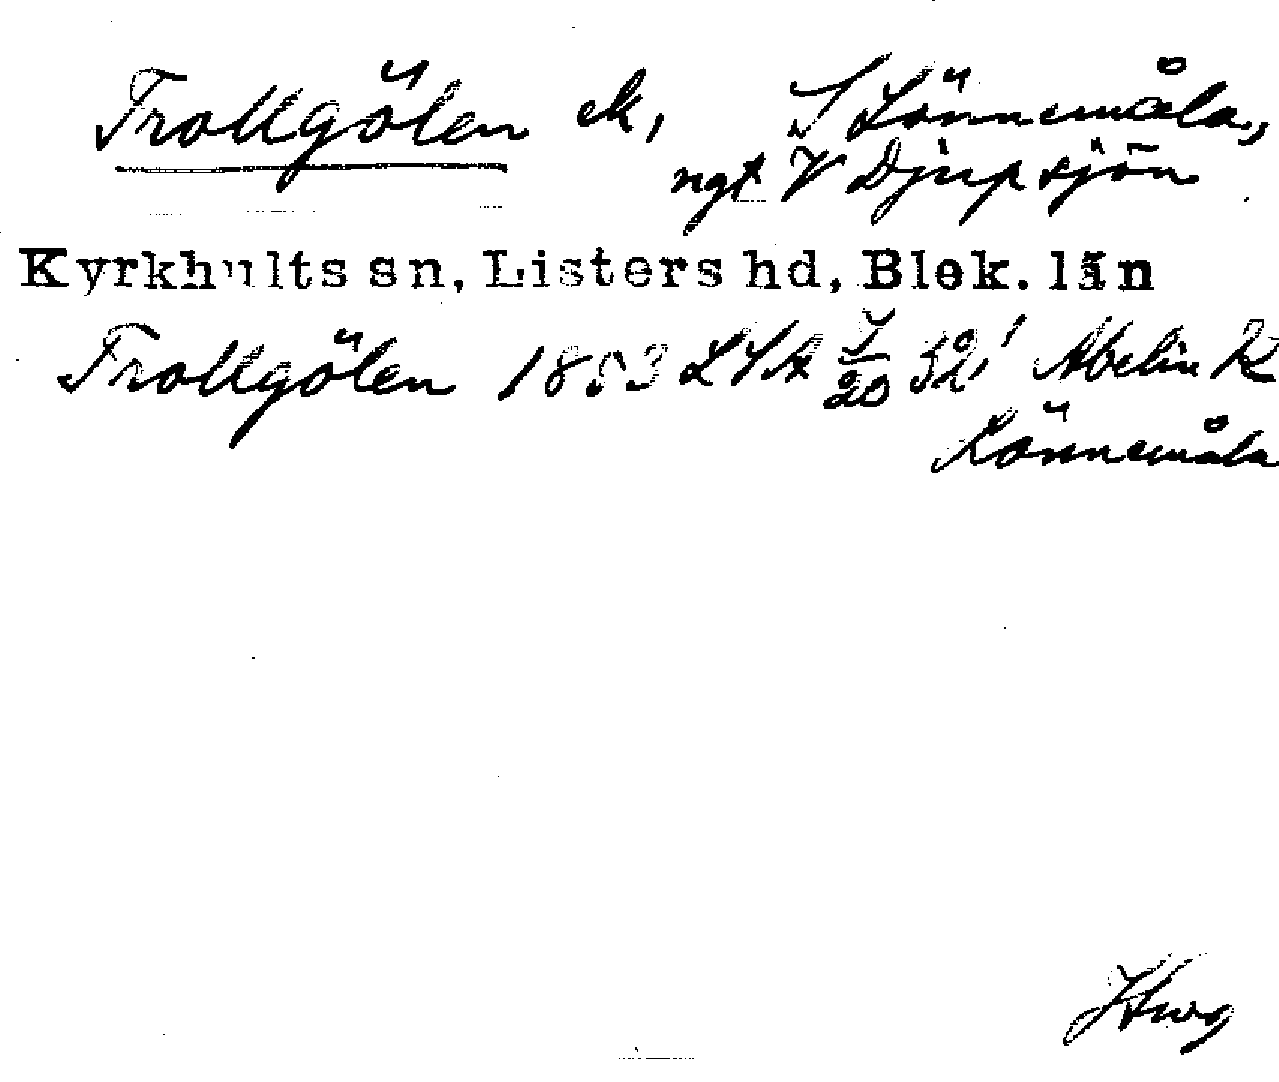 Trollgölen ek, S Lönnemåla,
ngt V Djupsjön
Kyrkhults sn, Listers hd, Blek. län
Trollgölen 1853 LSA 32' Abelin K
Lönnemåla